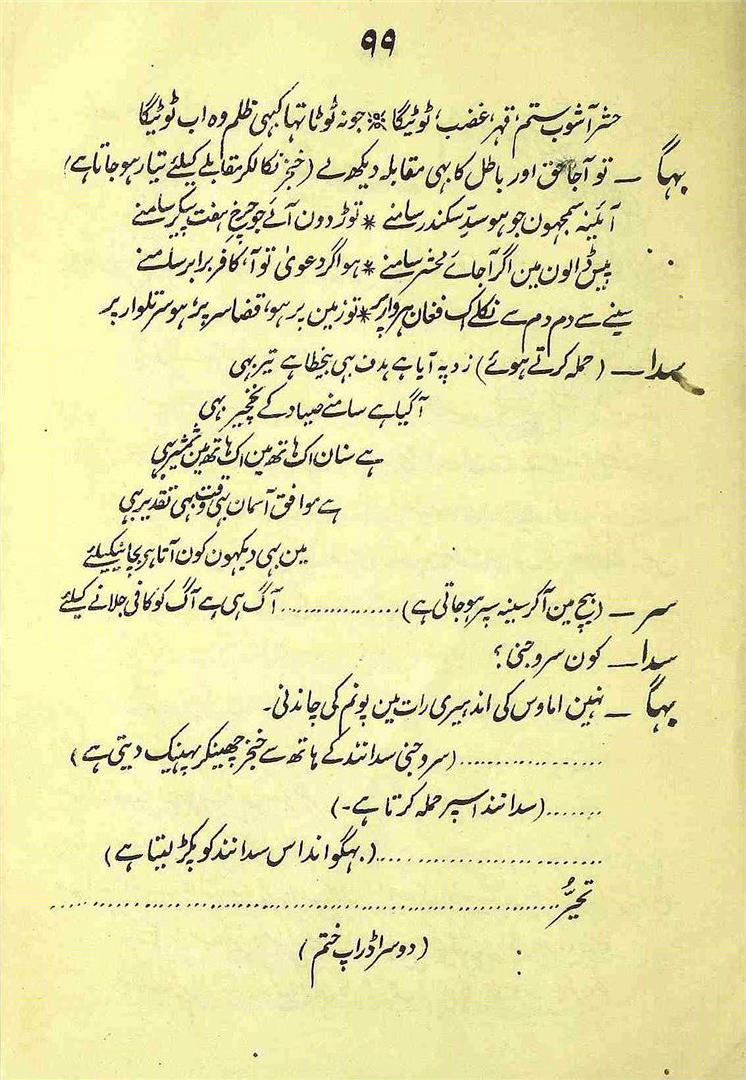 ۹۹
حشر آشوب ستم، قہر، غضب، ٹوٹیگا ※ جو نہ ٹوٹا تہا کبہی ظلم وہ اب ٹوٹیگا
بہگا ــ تو آجا حق اور باطل کا بہی مقابلہ دیکھ لے (خنجر نکالکر مقابلے کیلئے تیار ہو جاتا ہے)
آئینہ سمجہون جو ہو سدِّ سکندر سامنے * توڑ دون آئے جو چرخِ ہفت پیکر سامنے
پیس ڈالون مین اگر آجائے محشر سامنے * ہو اگر دعویٰ تو آ، کافر برابر سامنے
سینے سے دم دم سے نکلے اک فغان ہر وار پر * تو زمین پر ہو، قضا سر پر، ہو سر تلوار پر
سدا ــ (حملہ کرتے ہوئے) زد پہ آیا ہے ہدف بہی بیخطا ہے تیر بہی
آگیا ہے سامنے صیاد کے نخچیر بہی
ہے سنان اک ہاتھ مین اک ہاتھ مین شمشیر بہی
ہے موافق آسمان بہی وقت بہی تقدیر بہی
مین بہی دیکہون کون آتا ہے بچانیکیلئے
سر ــ (بیچ مین آکر سینہ سپر ہو جاتی ہے) ................ آگ ہی ہے آگ کو کافی جلانے کیلئے
سدا ــ کون سروجنی؟
بہگا ــ نہین اماوس کی اندہیری رات مین پونم کی چاندنی۔
................ (سروجنی سدانند کے ہاتھ سے خنجر چھینکر پہینک دیتی ہے)
....... (سدانند اسپر حملہ کرتا ہے۔)
........................ (بہگوانداس سدانند کو پکڑ لیتا ہے)
تحیُّر ................................................
(دوسرا ڈراپ ختم)